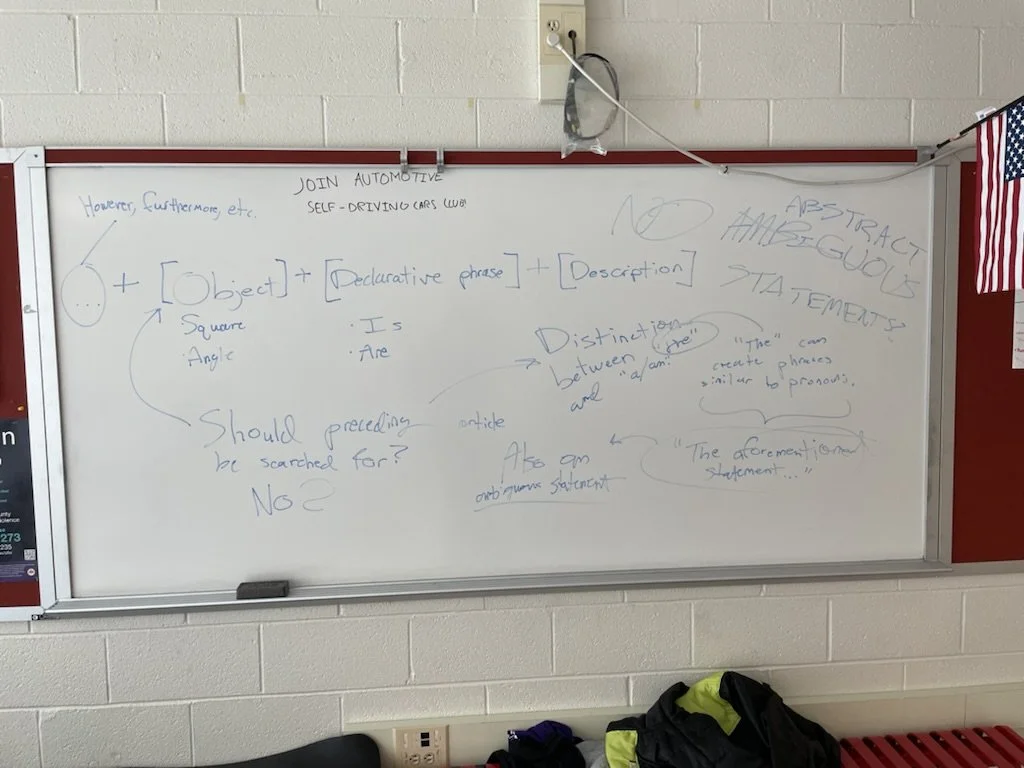 JOIN AUTOMOTIVE
SELF-DRIVING CARS CLUB
However, furthermore, etc.
... + [Object] + [Declarative phrase] + [Description]
Square
· Angle
· Is
· Are
NO
ABSTRACT
AMBIGUOUS
STATEMENTS?
Distinction
between "the"
and "a/an"
"The" can
create phrases
similar to pronouns.
Should preceding article
be searched for?
No?
Also an
ambiguous statement
"The aforementioned
statement..."
n
273
235